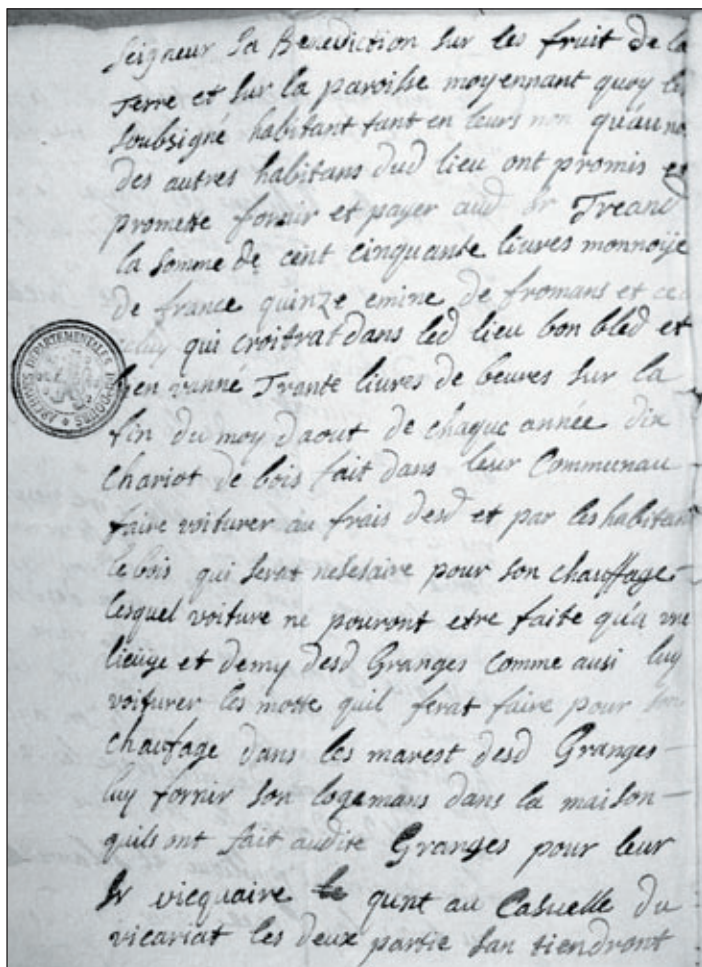 Seigneur sa Benediction sur les fruit de la
Terre et sur la paroisse moyennant quoy les
soubsigné habitant tant en leurs non qu'au no
des autres habitans dud lieu ont promis et
promette fornir et payer aud Sr Treand
la somme de cent cinquante livres monnoije
de france quinze emine de fromans et ce
qui croitrat dans led lieu bon bled et
bien vanné Trante livres de beures sur la
fin du moy daout de chaque année dix
chariot de bois fait dans leur Communau
faire voiturer au frais desd et par les habitant
le bois qui serat nesesaire pour son chauffage
lesquel voiture ne pouront etre faite qu'a une
lieüye et demy desd Granges comme ausi luy
voiturer les motte quil ferat faire pour son
chaufage dans les marest desd Granges
luy fornir son logemans dans la maison
quils ont fait audite Granges pour leur
Sr vicquaire qunt au Casuelle du
vicariat les deux partie san tiendront
ARCHIVES DEPARTEMENTALES DU DOUBS